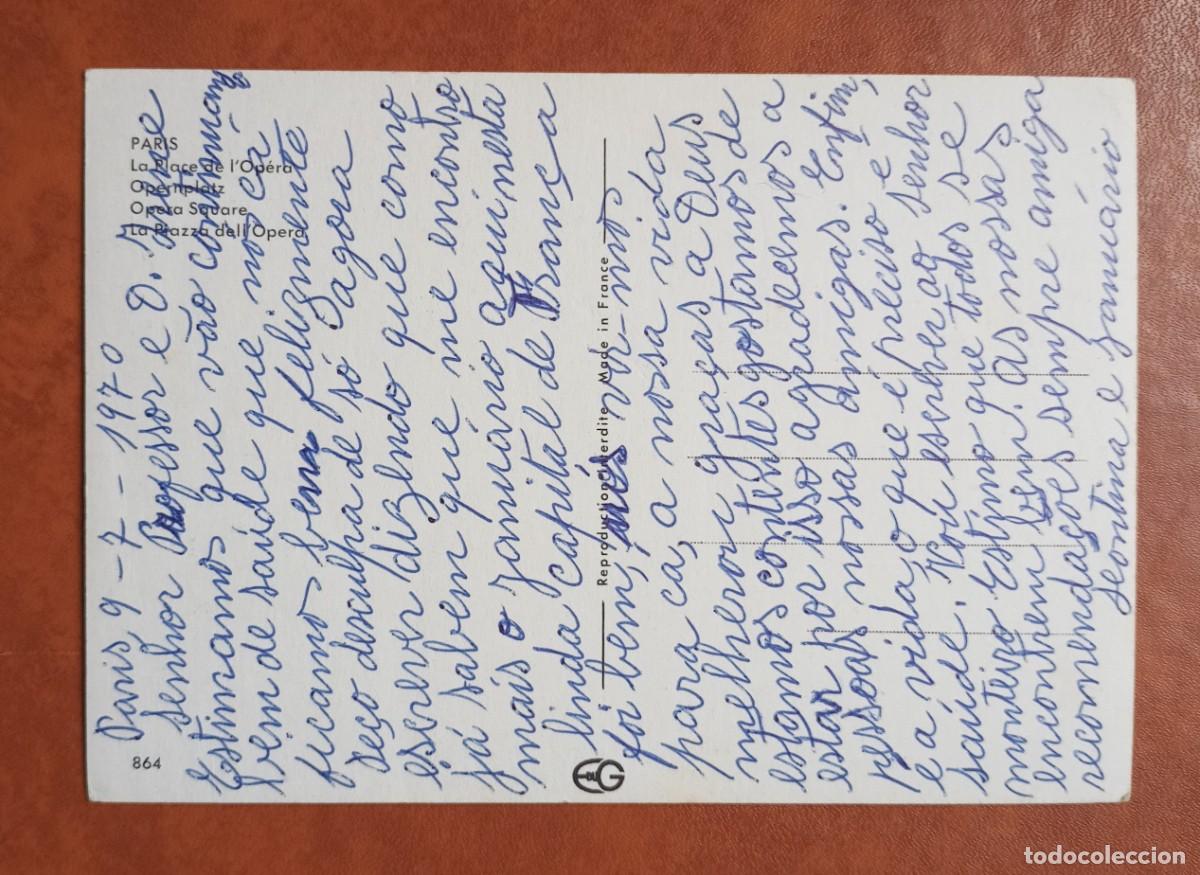 PARIS
La Place de l'Opéra
Opernplatz
Opera Square
La Piazza dell'Opera
864
Reproduction Interdite Made in France
Paris 9-7-1970
Senhor Professor e D.
Estimamos que vão continuando
bem de saúde que nos cá
ficamos bem felizmente
Peço desculha de só agora
escrever dizendo que como
já sabem que me encontro
mais o Januário aqui, nesta
linda capital de França
foi bem, vir-mos
para cá, a nossa vida
melheror graças a Deus
estamos contentes gostamos de
estar por isso agradecemos a
pessoas nossas amigas. Enfim,
é a vida, o que é preciso é
saúde. Vou escrever ao senhor
monteiro Estimo que todos se
encontrem bem. as nossas
recomendações sempre amiga
Leontina e Januário
todocoleccion